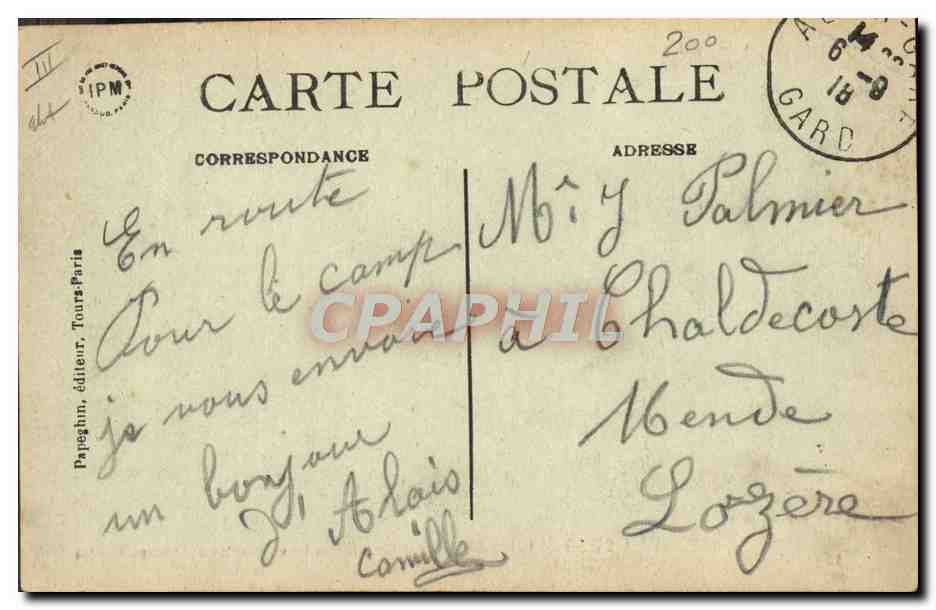 200
III
IPM
CARTE POSTALE
CORRESPONDANCE
ADRESSE
GARD
14
6 - 9
18
En route
Pour le camp
je vous envoie
un bonjour
D'Alais
Camille
Mr J Palmier
à Chaldecoste
Mende
Lozère
Papeghin, éditeur, Tours-Paris
CPAPHIL